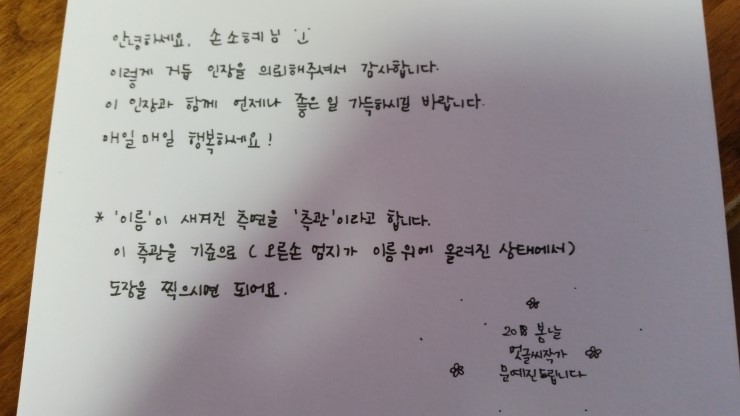 안녕하세요, 손소혜님 :)
이렇게 거듭 인장을 의뢰해주셔서 감사합니다.
이 인장과 함께 언제나 좋은 일 가득하시길 바랍니다.
매일매일 행복하세요!
* '이름'이 새겨진 측면을 '측관'이라고 합니다.
이 측관을 기준으로 (오른손 엄지가 이름 위에 올려진 상태에서)
도장을 찍으시면 되어요.
2018 봄날
멋글씨작가
문예진드립니다